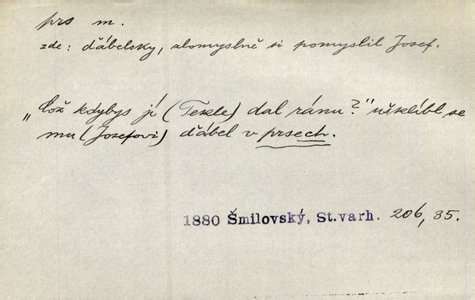 prs m.
zde: ďábelsky, zlomyslně si pomyslil Josef.
„Což kdybys jí (Tekle) dal ránu?" ušklíbl se
mu (Josefovi) ďábel v prsech.
1880 Šmilovský, St.varh. 206, 35.